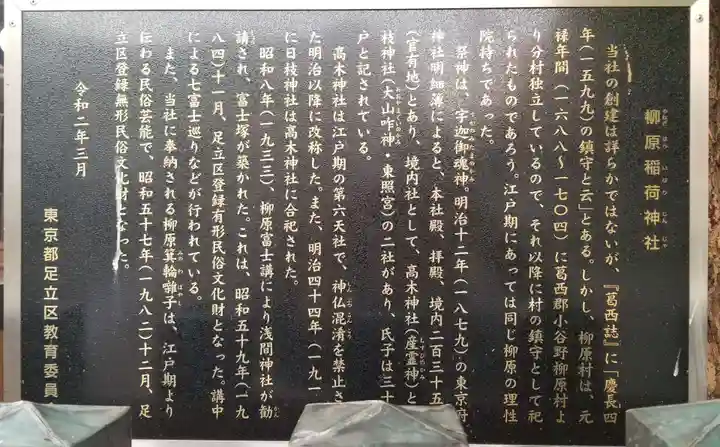 柳原稲荷神社
やなぎ はら いなり じん じゃ
当社の創建は詳らかではないが、『葛西誌』に「慶長四
年(一五九九)の鎮守と云」とある。しかし、柳原村は、元
禄年間(一六八八~一七〇四)に葛西郡小谷野柳原村よ
り分村独立しているので、それ以降に村の鎮守として祀
られたものであろう。江戸期にあっては同じ柳原の理性
院持ちであった。
祭神は、宇迦御魂神。明治十二年(一八七九)の東京府
神社明細簿によると、本社殿、拝殿、境内二百三十五
(官有地)とあり、境内社として、高木神社(産霊神)と
枝神社(大山咋神・東照宮)の二社があり、氏子は三十
戸と記されている。
高木神社は江戸期の第六天社で、神仏混淆を禁止さ
た明治以降に改称した。また、明治四十四年(一九一
に日枝神社は高木神社に合祀された。
昭和八年(一九三三)、柳原富士講により浅間神社が勧
請され、富士塚が築かれた。これは、昭和五十九年(一九
八四)十一月、足立区登録有形民俗文化財となった。講中
による七富士巡りなどが行われている。
また、当社に奉納される柳原箕輪囃子は、江戸期より
伝わる民俗芸能で、昭和五十七年(一九八二)十二月、足
立区登録無形民俗文化財となった。
令和二年三月
東京都足立区教育委員